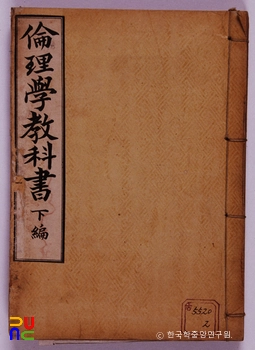 倫理學教科書 下編
古
5520
2
ⓒ 한국학중앙연구원